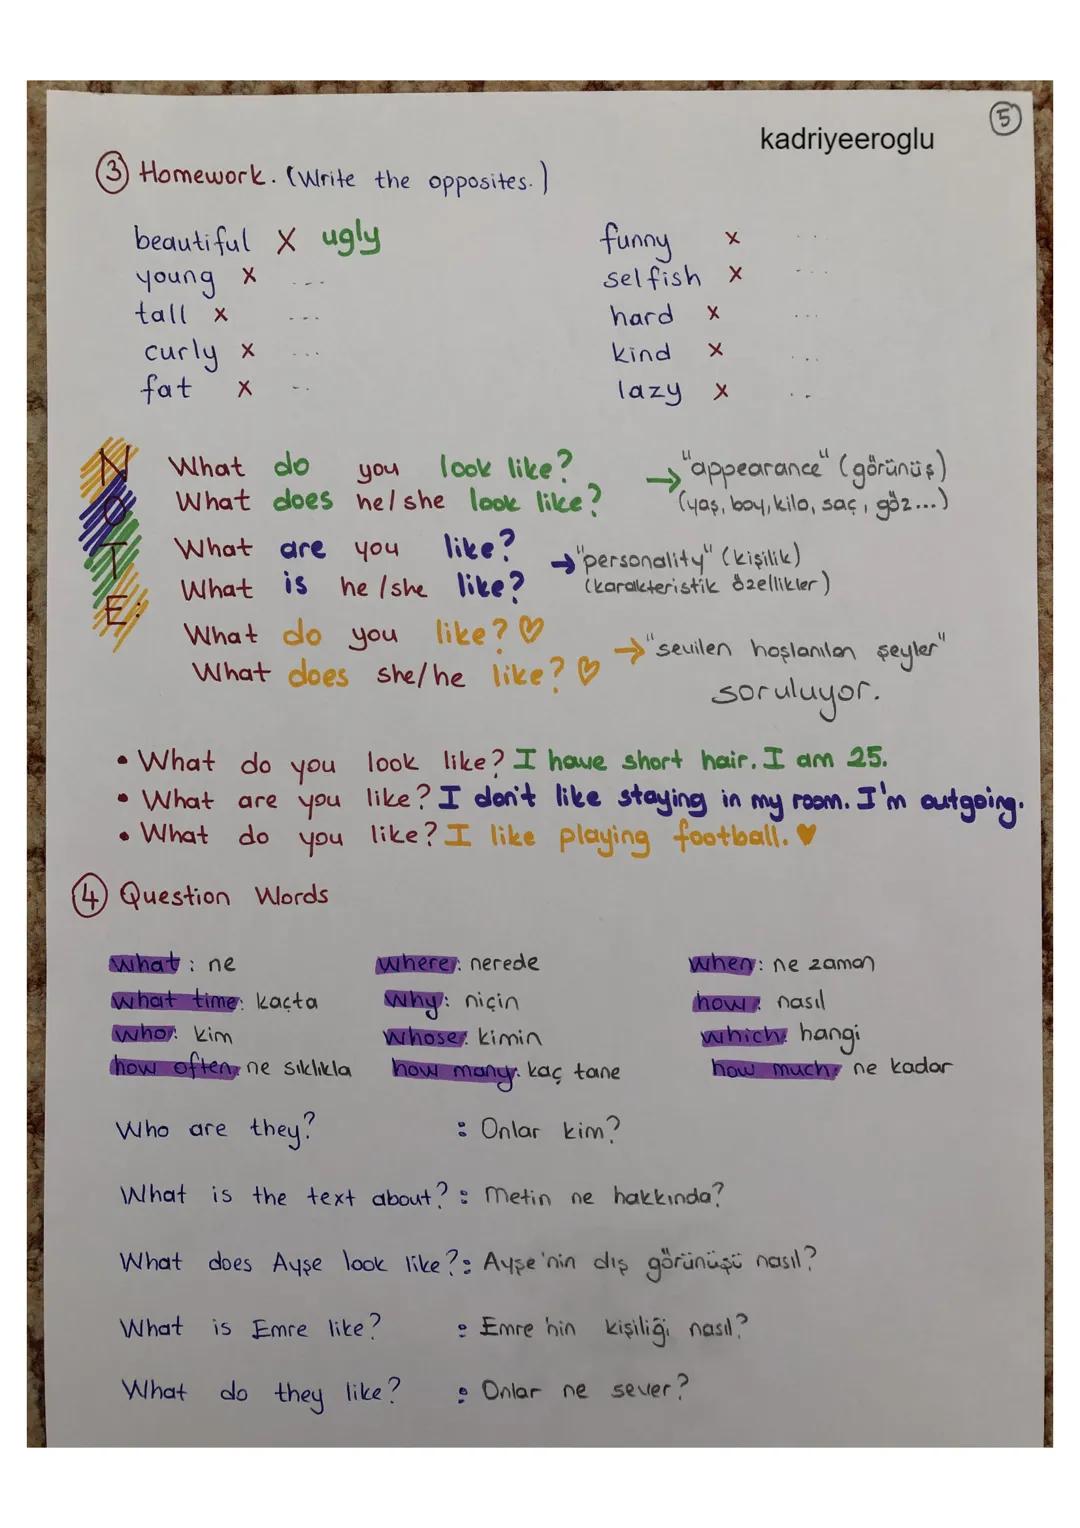 5
kadriyeeroglu
3 Homework. (Write the opposites.)
beautiful X ugly
young X ...
tall X ...
curly X ...
fat X ...
funny X ...
selfish X ...
hard X ...
kind X ...
lazy X ...
NOTE:
What do you look like?
What does he/she look like?
→ "appearance" (görünüş)
(yaş, boy, kilo, saç, göz...)
What are you like?
What is he/she like?
→ "personality" (kişilik)
(karakteristik özellikler)
What do you like? ♡
What does she/he like? ♡
→ "sevilen hoşlanılan şeyler"
soruluyor.
• What do you look like? I have short hair. I am 25.
• What are you like? I don't like staying in my room. I'm outgoing.
• What do you like? I like playing football. ♥
4 Question Words
what: ne
what time: kaçta
who: kim
how often: ne sıklıkla
where: nerede
why: niçin
whose: kimin
how many: kaç tane
when: ne zaman
how: nasıl
which: hangi
how much: ne kadar
Who are they? : Onlar kim?
What is the text about? : Metin ne hakkında?
What does Ayşe look like? : Ayşe'nin dış görünüşü nasıl?
What is Emre like? : Emre'nin kişiliği nasıl?
What do they like? : Onlar ne sever?